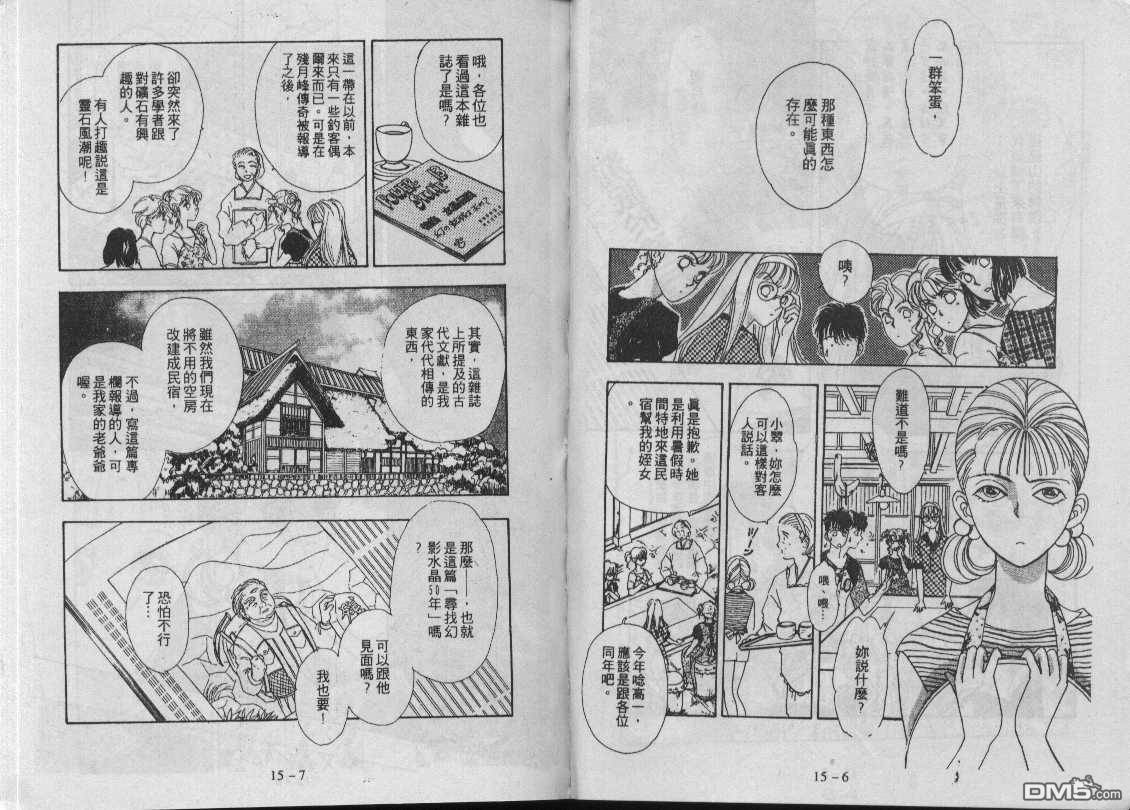 一群笨蛋，
那種東西怎
麼可能真的
存在。
咦？
難道不是嗎？
喂、喂…
妳説什麼？
小翠，妳怎麼
可以這樣對客
人説話。
真是抱歉。她
是利用暑假時
間特地來這民
宿幫我的姪女
。
今年唸高一，
應該是跟各位
同年吧。
15－6
哦，各位也
看過這本雜
誌了是嗎？
這一帶在以前，本
來只有一些釣客偶
爾來而已。可是在
殘月峰傳奇被報導
了之後，
卻突然來了
許多學者跟
對礦石有興
趣的人。
有人打趣説這是
靈石風潮呢！
其實，這雜誌
上所提及的古
代文獻，是我
家代代相傳的
東西，
雖然我們現在
將不用的空房
改建成民宿，
不過，寫這篇專
欄報導的人，可
是我家的老爺爺
喔。
那麼——，也就
是這篇「尋找幻
影水晶50年」嗎
？
可以跟他
見面嗎？
我也要！
恐怕不行
了…
15－7
DM5.com